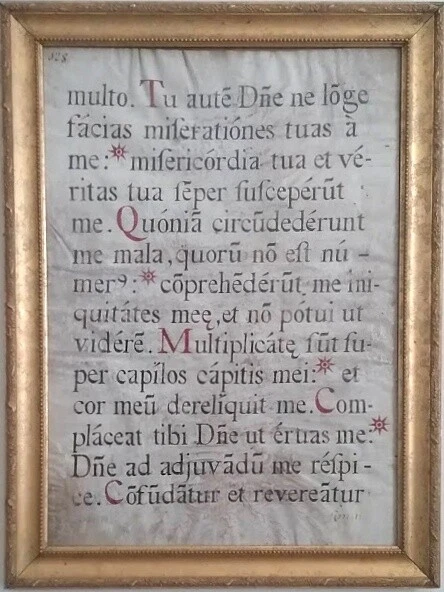 128
multo. Tu autē Dñe ne lõge
fácias miſeratiónes tuas à
me:* miſericórdia tua et vé-
ritas tua ſēper ſuſcepérūt
me. Quóniā circūdedérunt
me mala, quorū nõ eſt nú-
merꝰ:* cõprehēdérūt me ini-
quitátes meę, et nõ pótui ut
vidérē. Multiplicátę ſūt ſu-
per capíłos cápitis mei:* et
cor meū derelíquit me. Com-
pláceat tibi Dñe ut éruas me:*
Dñe ad adjuvādū me réſpi-
ce. Cõfūdātur et revereātur